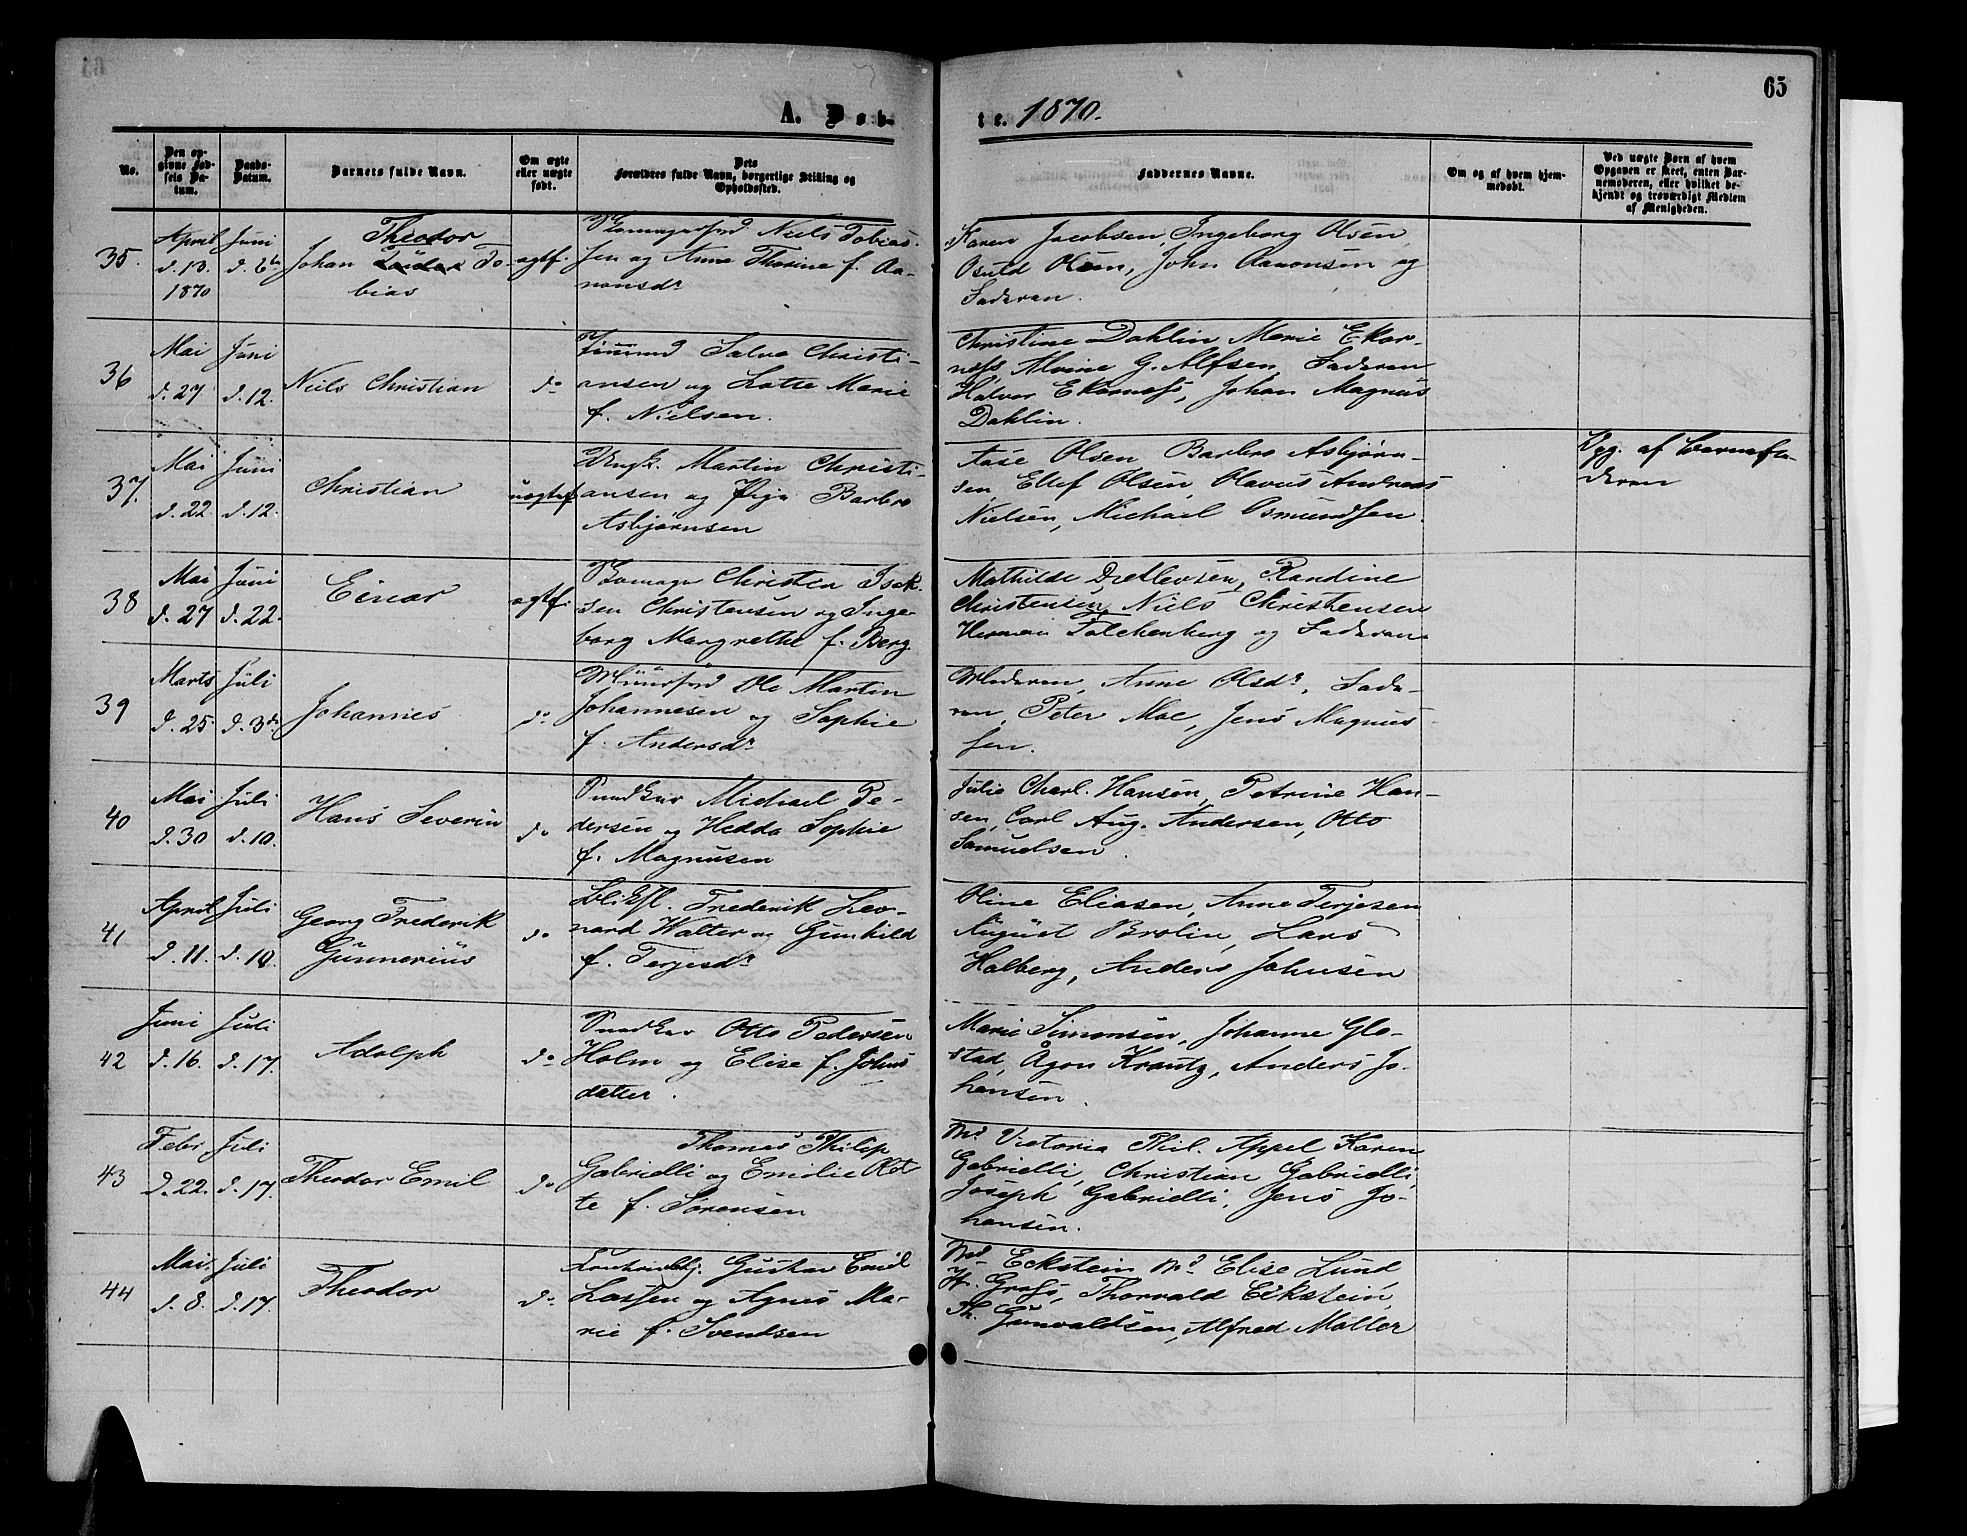 65
A. Døb-
te. 1870.
No.
Den op-
givne Fød-
sels Da-
tum.
Daabs-
Datum.
Barnets fulde Navn.
Om ægte
eller uægte
født.
Dets
Forældres fulde Navn, borgerlige Stilling og
Opholdssted.
Faddernes Navne.
Om og af hvem hjem-
medøbt.
Ved uægte Børn af hvem
Opgaven er skeet, enten Bar-
nemoderen, eller hvilket be-
kjendt og troværdigt Medlem
af Menigheden.
35.
April
d. 13.
1870
Juni
d. 6te
Theodor
Johan To-
bias
ægtf.
Niels Tobias-
sen og Anne Thorine f. Aa-
nonsdr
Karen Jacobsen, Ingeborg Olsen
Osuld Olsen, John Aanonsen og
Faderen.
36
Mai
d. 27.
Juni
d. 12.
Niels Christian
do
Tømmd Salve Christi-
ansen og Lotte Marie
f. Nielsen.
Christine Dahlin, Marie Ekor-
ness Alvine G. Alfsen, Faderen
Halvor Ekorness, Johan Magnus
Dahlin.
37.
Mai
d. 22.
Juni
d. 12.
Christian
uægtef.
Ungk. Martin Christi-
ansen og Pige Barbro
Asbjørnsen
Aase Olsen Barbro Asbjørn-
sen, Ellef Olsen, Olavus Andreas
Nielsen, Michael Osmundsen.
Opg. af barnefa-
deren
38
Mai
d. 27
Juni
d. 22.
Einar
ægtf.
Christen Isak-
sen Christensen og Inge-
borg Margrethe f. Berg
Mathilde Detlevsen, Randine
Christensen, Niels Christensen
Herman Falchenberg og Faderen
39
Marts
d. 25
Juli
d. 3die
Johannes
do
Ole Martin
Johannesen og Sophie
f. Andersdr
Moderen, Anne Olsdr, Fade-
ren, Peter Moe, Jens Magnus-
sen.
40
Mai
d. 30
Juli
d. 10.
Hans Severin
do
Snedker Michael Pe-
dersen og Hedda Sophie
f. Magnusen
Julie Charl. Hansen, Petrine Han-
sen, Carl Aug. Andersen, Otto
Samuelsen.
41
April
d. 11.
Juli
d. 10.
Georg Frederik
Gunnerius
do
Bliksl. Frederik Leo-
nard Walter og Gunhild
f. Terjesdr
Oline Eliasen, Anne Terjesen
August Brolin, Lars
Halberg, Anders Johnsen
42
Juni
d. 16.
Juli
d. 17.
Adolph
do
Snedker Otto Pedersen
Holm og Elise f. Johns
datter.
Marie Simonsen, Johanne Glo-
stad, Ågon Krantz, Anders Jo-
hansen.
43
Febr.
d. 22.
Juli
d. 17.
Theodor Emil
do
Thomas Philip
Gabrielli og Emilie Ret-
te f. Sørensen
Md Victoria Phil. Appel Karen
Gabrielli, Christian Gabrielli,
Joseph Gabrielli, Jens Jo-
hansen.
44
Mai
d. 8.
Juli
d. 17.
Theodor
do
Gustav Emil
Lassen og Agnes Ma-
rie f. Svendsen
Md Eckstein Md Elise Lund
H. Gross, Thorvald Eckstein,
Th. Gunvaldsen, Alfred Møller